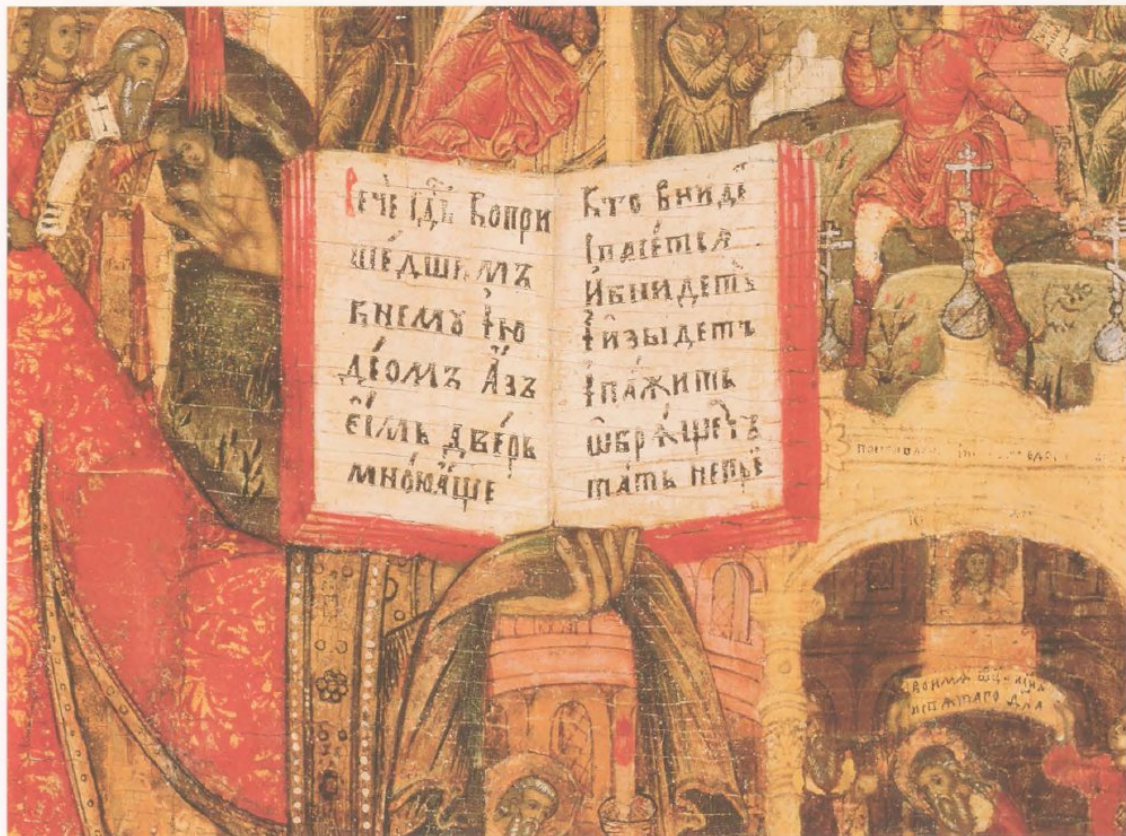 Рече гдⷭ҇ь ко при
ше́дшимъ
к нему̀ ї҆ю
де́омъ А҆́зъ
є҆́смь две́рь
мно́ю а҆́ще
Кто внидеⷮ
спасе́тсѧ
и҆ внидетъ
и҆ изыдетъ
и҆ па́жить
ѡ҆брѧ́щетъ
та́ть непⷭ҇ѣ
во имѧ ѿца и сна
и ст҃аго дх҃а